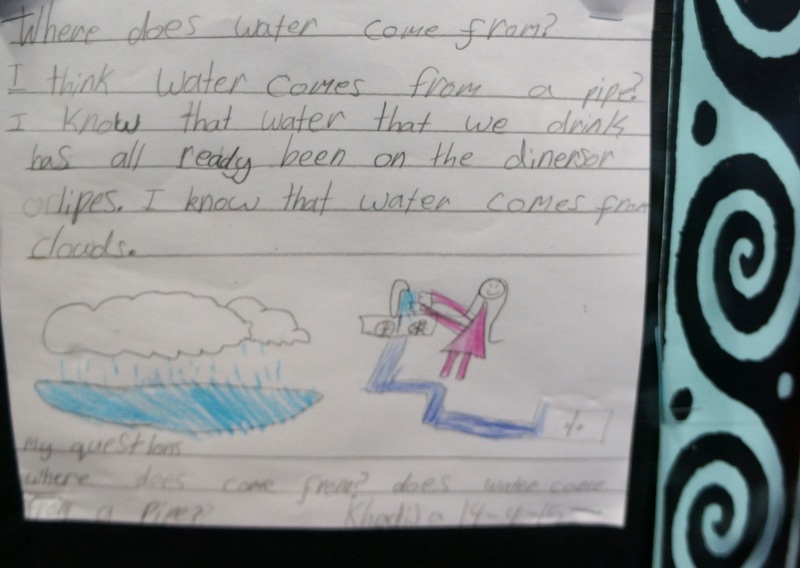 Where does water come from?
I think water comes from a pipe?
I know that water that we drink
has all ready been on the dinersor
dipes. I know that water comes from
clouds.
my questions
where does come from? does water come
from a Pipe?